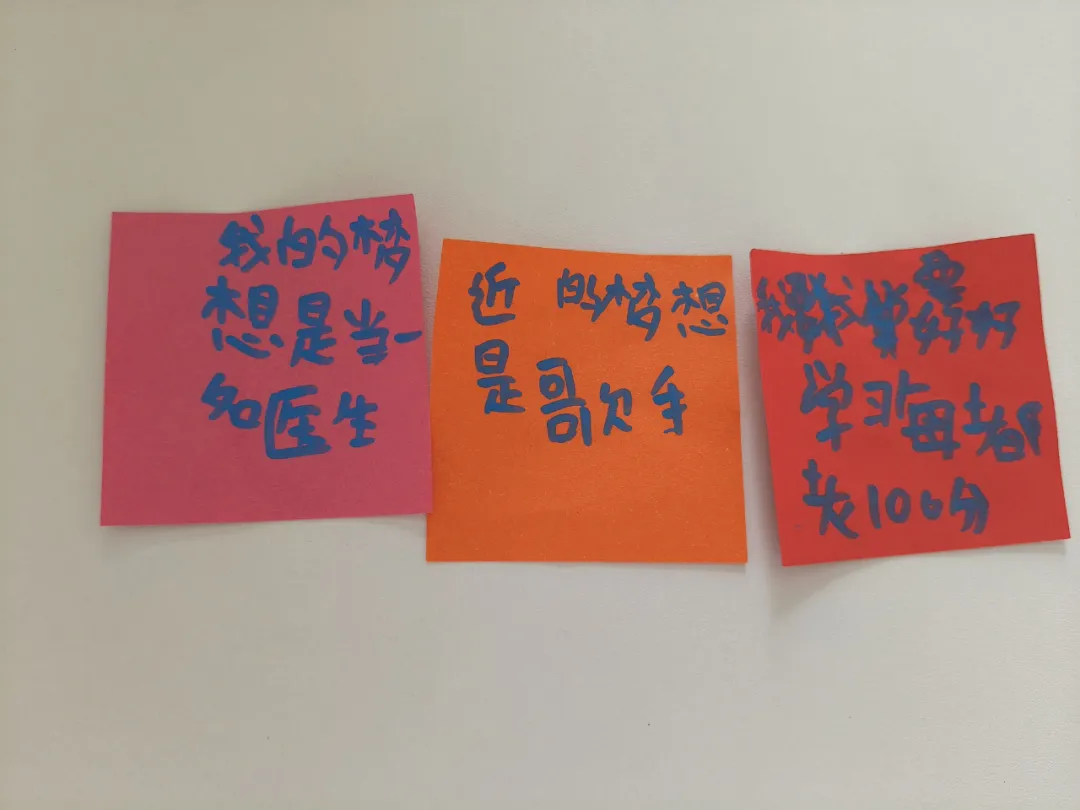 我的梦
想是当一
名医生
近 的梦想
是歌手
我要好好
学习每
100分